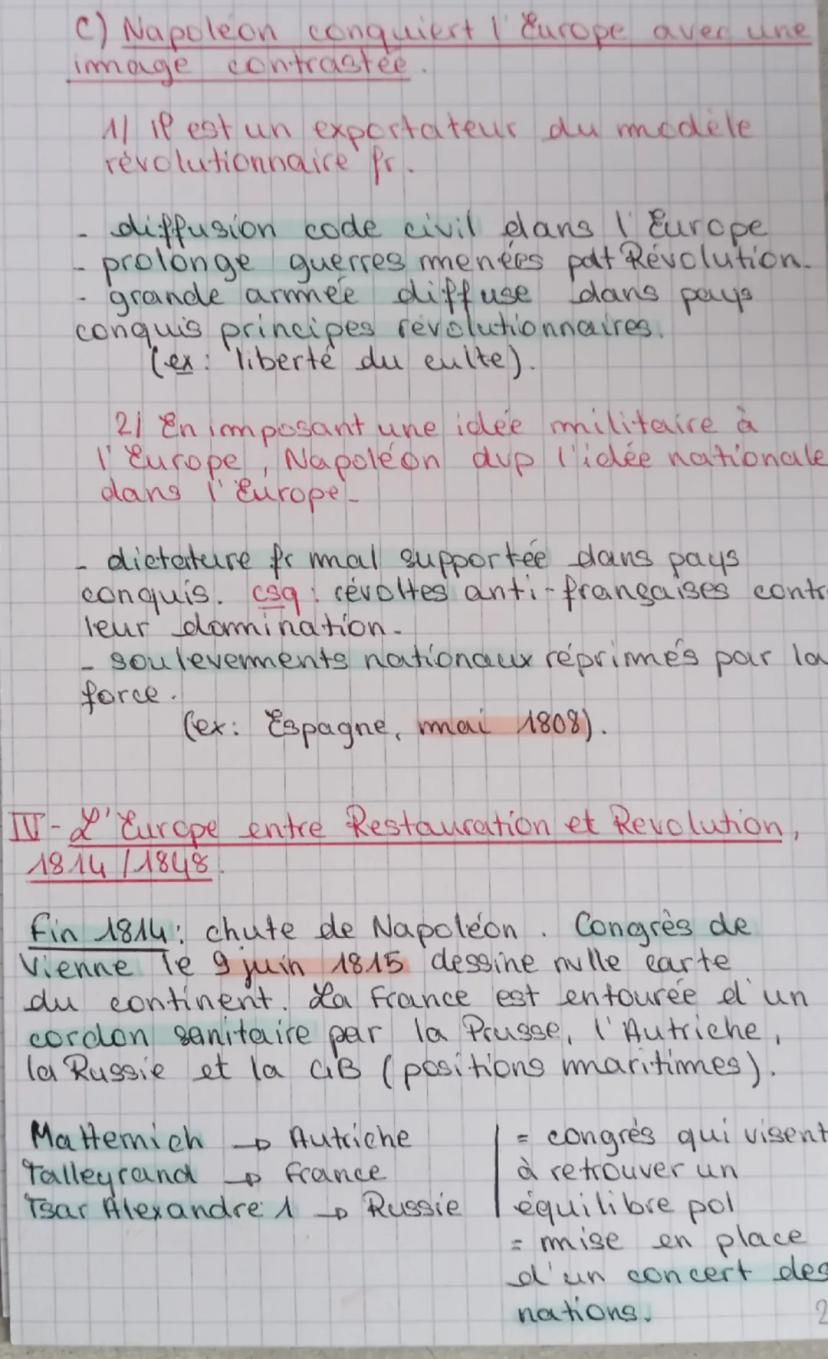 C) Napoléon conquiert l'Europe avec une
image contrastée.
1) Il est un exportateur du modèle
révolutionnaire fr.
- diffusion code civil dans l'Europe
- prolonge guerres menées pdt Révolution.
- grande armée diffuse dans pays
conquis principes révolutionnaires.
(ex: liberté du culte).
2) En imposant une idée militaire à
l'Europe, Napoléon dvp l'idée nationale
dans l'Europe.
- dictature fr mal supportée dans pays
conquis. csq: révoltes anti-françaises contr
leur domination.
- soulevements nationaux réprimés par la
force.
(ex: Espagne, mai 1808).
IV - L'Europe entre Restauration et Revolution,
1814/1848.
Fin 1814: chute de Napoléon. Congrès de
Vienne le 9 juin 1815 dessine nvlle carte
du continent. La France est entourée d'un
cordon sanitaire par la Prusse, l'Autriche,
la Russie et la GB (positions maritimes).
Matternich → Autriche
Talleyrand → France
Tsar Alexandre 1 → Russie
= congrés qui visent
à retrouver un
équilibre pol
= mise en place
d'un concert des
nations.
2